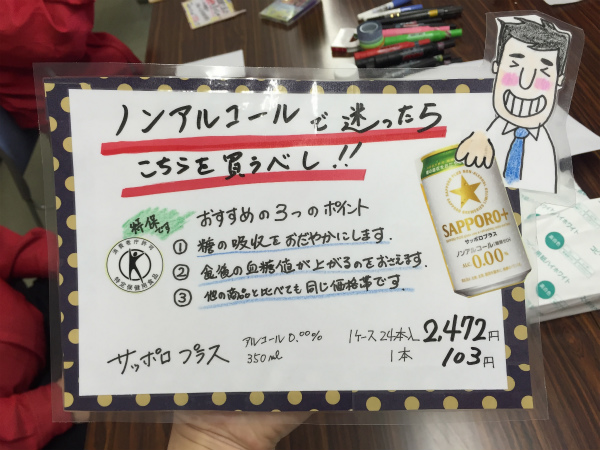 ノンアルコールで迷ったら
こちらを買うべし!!
特保です
おすすめの3つのポイント
消費者庁許可
特定保健用食品
① 糖の吸収をおだやかにします.
② 食後の血糖値が上がるのをおさえます.
③ 他の商品と比べても同じ価格帯です.
サッポロ プラス
アルコール 0.00%
350ml
1ケース24本入 2,472円
1本 103円
SAPPORO+
サッポロプラス
ノンアルコール
0.00%